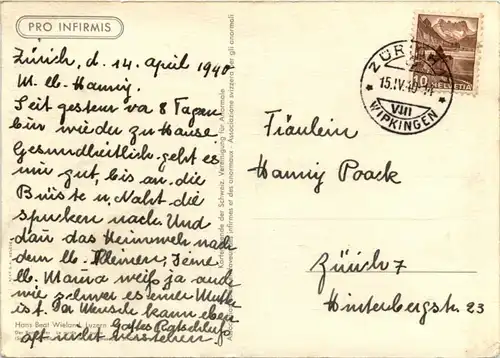 PRO INFIRMIS
Zürich, d. 14. april 1940
M. lb. Hanny.
Seit gestern vor 8 Tagen
bin wieder zu Hause
Gesundheitlich geht es
mir gut, bis an die
Brüste u. Naht die
spuken nach. Und
dan das Heimweh nach
dem lb. Kleinen; Deine
lb. Mama weiß ja auch
wie schwer es einer Mutter
ist. Der Mensch kann eben
Gottes Ratschluß
oft nicht verstehen.
Hans Beat Wieland, Luzern
Kartenspende der Schweiz. Vereinigung für Anormale
Association suisse en faveur des infirmes et des anormaux - Associazione svizzera per gli anormali
ZÜRICH
15.IV.40-14
VIII
WIPKINGEN
10 HELVETIA
Fräulein
Hanny Poack
Zürich 7
Hinterbergstr. 23